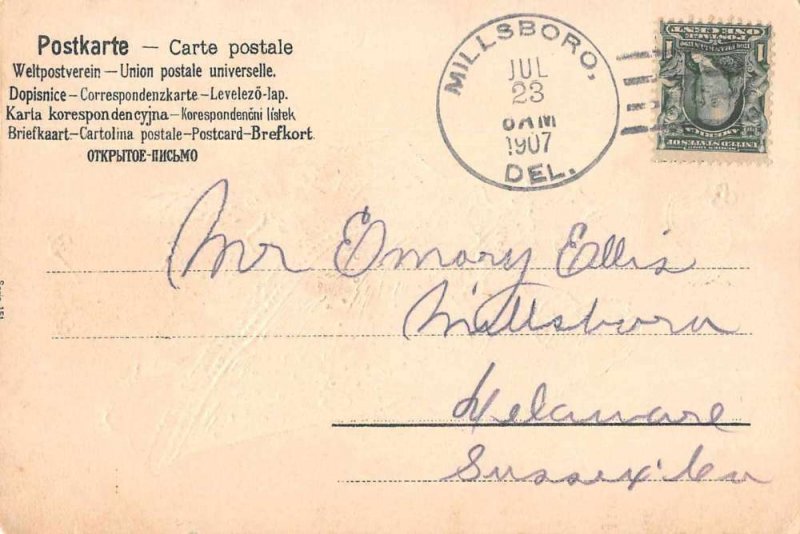 Postkarte – Carte postale
Weltpostverein – Union postale universelle.
Dopisnice – Correspondenzkarte – Levelező-lap.
Karta korespondencyjna – Korespondenční lístek
Briefkaart – Cartolina postale – Postcard – Brefkort
ОТКРЫТОЕ-ПИСЬМО
MILLSBORO,
JUL
23
8AM
1907
DEL.
1
UNITED STATES OF
AMERICA
POSTAGE
ONE CENT
1
Mr Emory Ellis
Millsboro
Delaware
Sussex Co